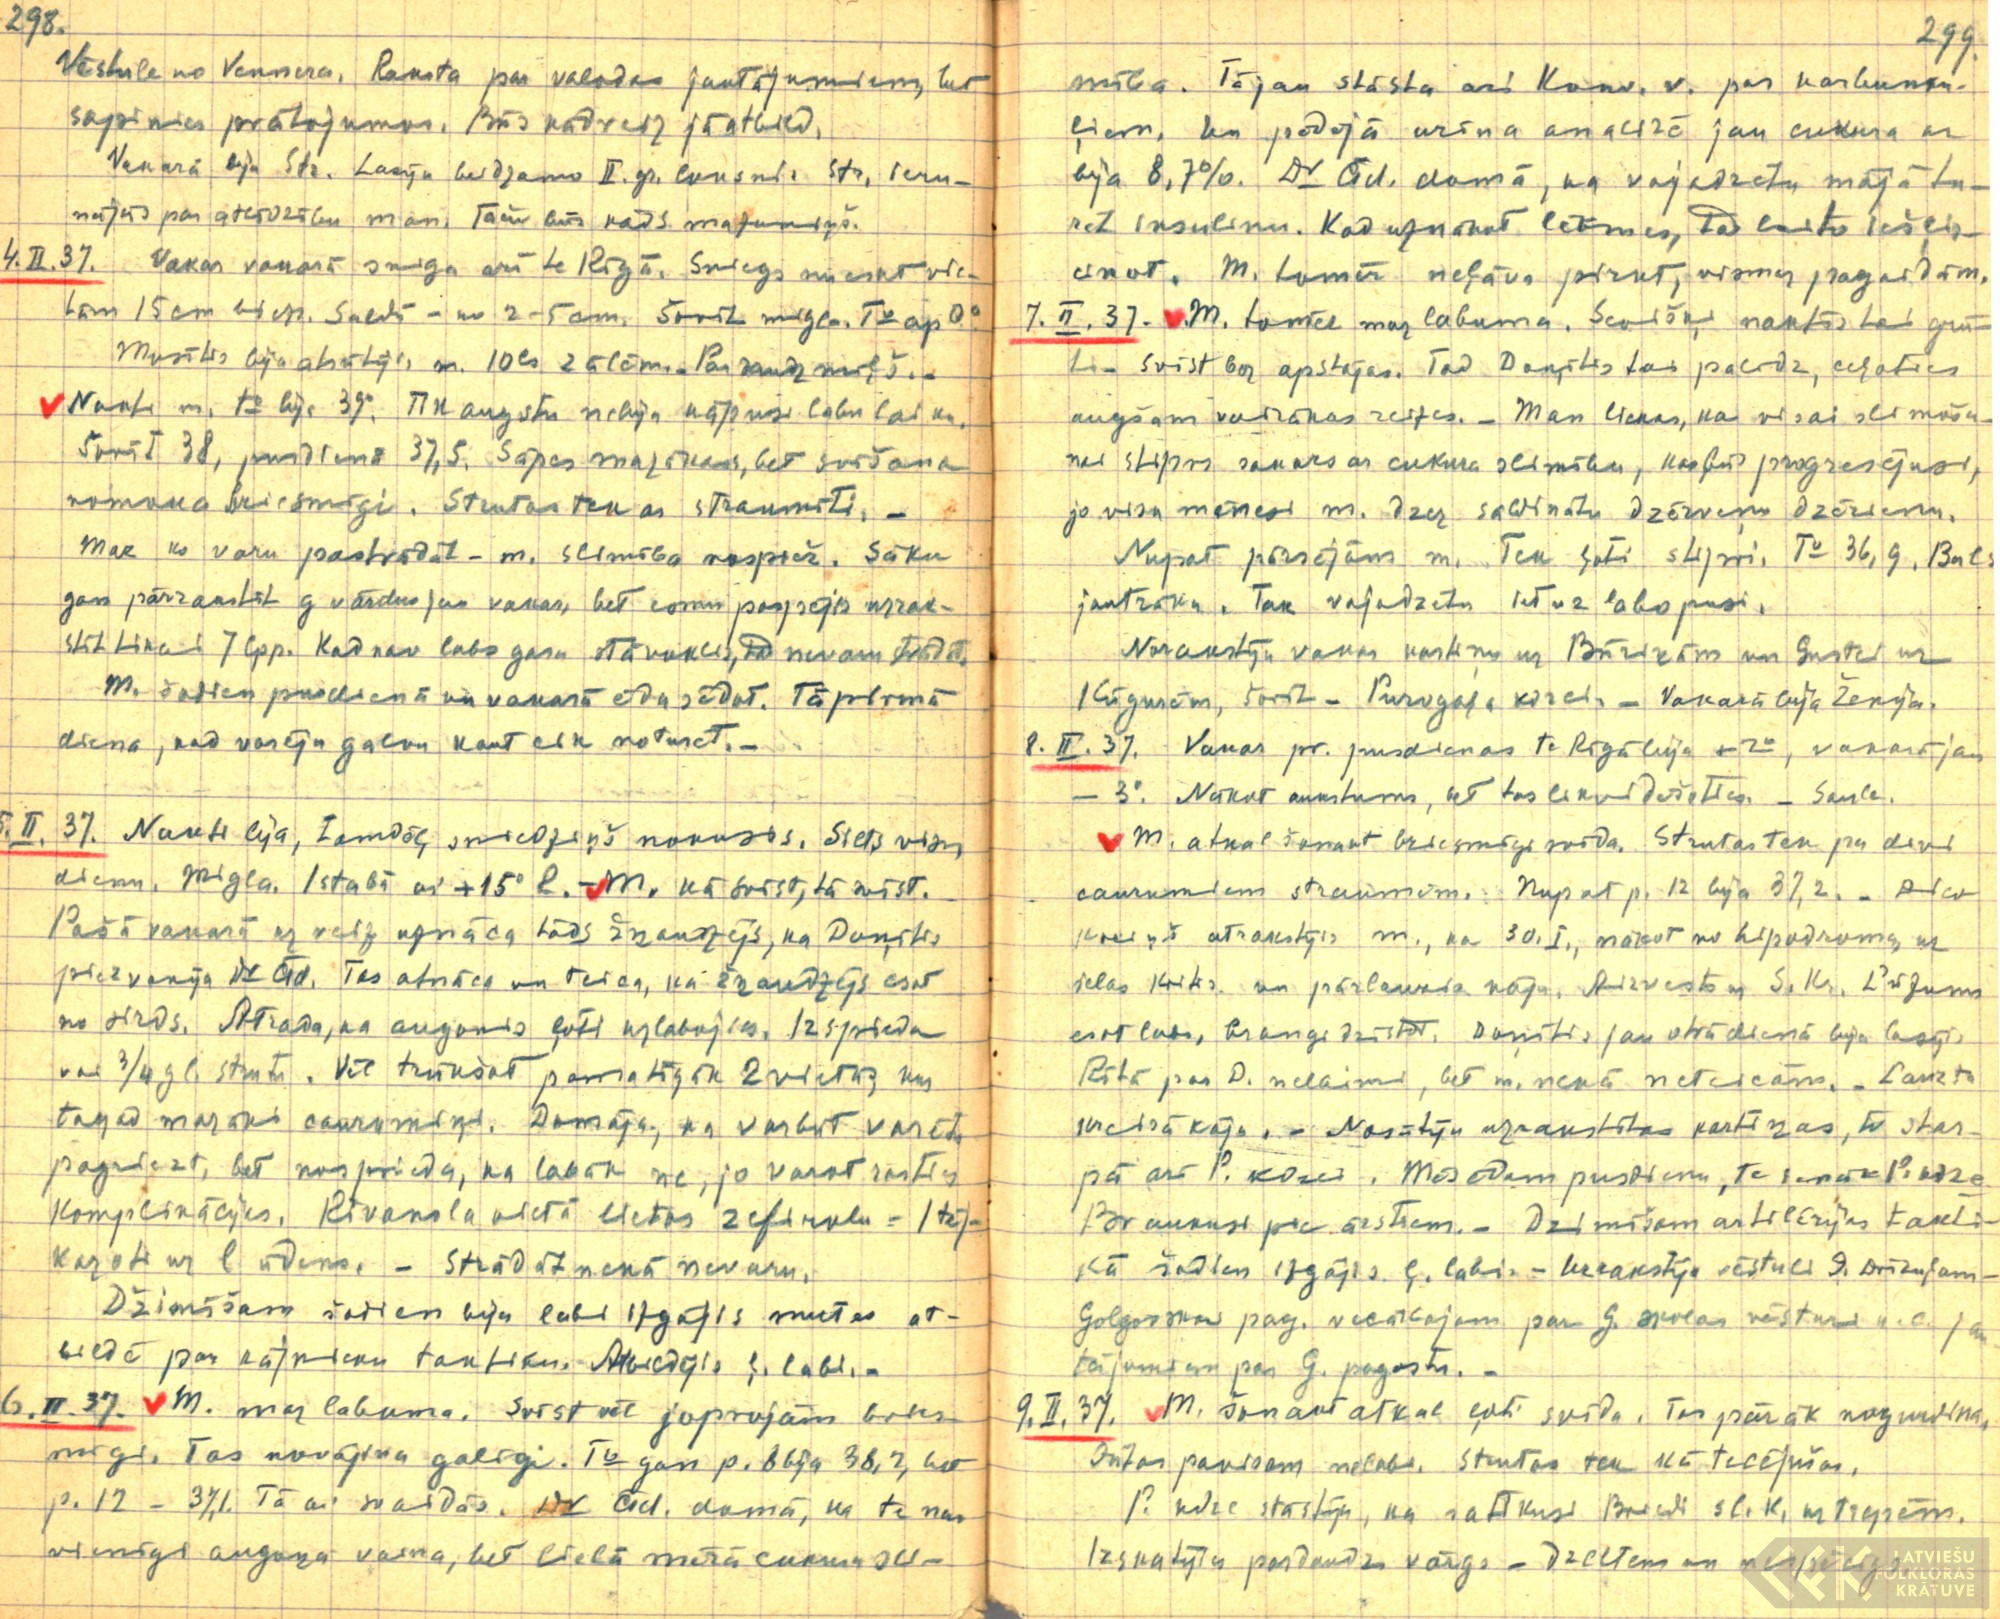 298.
Vēstule no Vennera. Raksta par valodas jautājumiem, bet
sapinies prātojumos. Būs kādreiz jāatbild.
Vakarā bija Str. Lasīja beidzamo II. gr. loksni. Str. ieru-
nājās par atlīdzību man. Tāču būs kāds mazumiņš.
4.II.37. Vakar vakarā sniga arī te Rīgā. Sniegs nuesot vie-
tām 15 cm biezs. Saldū - no 2-5 cm. Šorīt migla. T° ap 0°
Musītis bija atsūtījis m. 10 ls zālēm. Par daudz mīļš. -
Naktī m. t° bija 39°. Tik augstu nebija kāpusi labu laiku.
Šorīt 38, pusdienā 37,5. Sāpes mazākas, bet svīšana
nomoka briesmīgi. Strutas tek ar straumīti. -
Maz ko varu pastrādāt - m. slimība nospiež. Sāku
gan pārrakstīt g vārdus jau vakar, bet esmu paspējis uzrak-
stīt tikai 7 lpp. Kad nav labs gara stāvoklis, tad nevaru strādāt.
M. šodien pusdienā un vakarā ēda sēdot. Tā pirmā
diena, kad varēja galvu kaut cik noturēt. -
5.II.37. Naktī bija, tomdēļ, sniedziņš nokusis. Silts visu
dienu. Migla. Istabā ai +15° C. - M. kā svīst, tā svīst.
Pašā vakarā uz reiz uznāca tāds žņaudzējs, ka Doņītis
piezvanīja Dr Čid. Tas atnāca un teica, ka žņaudzējs esot
no sirds. Atrada, ka augonis ļoti uzlabojies. Izspieda
vai 3/4 gl. strutu. Vēl trūkšot pamatīgāk 2 vietās, kur
tagad mazāki caurumiņi. Domāja, ka varbūt varētu
pagriezt, bet nosprieda, ka labāk ne, jo varot rasties
komplikācijas. Rivanola vietā lietos zefirolu = 1 tēj-
karoti uz l ūdens. - Strādāt nekā nevaru.
Džimīšam šodien bija labi izgājis mutes at-
bildē par kājnieku taktiku. Atbildējis ļ. labi. -
6.II.37. M. maz labuma. Svīst vēl joprojām bries-
mīgi. Tas novājina galīgi. T° gan p. 8 bija 38,2, bet
p. 12 - 37,1. Tā ai svaidās. Dr Čid. domā, ka te nav
vienīgi augoņa vaina, bet lielā mērā cukura sli-
299.
mība. Tā jau stāsta arī Konv. v. par karbunku-
ļiem. Un pēdējā urīna analīzē jau cukura ar
bija 8,7%. Dr Čid. domā, ka vajadzētu mājā tu-
rēt insulinu. Kad uznākot lēkmes, tad laistu iešļir-
cinot. M. tomēr neļāva pirkt, vismaz pagaidām.
7.II.37. M. tomēr maz labuma. Sevišķi naktīs tai grū-
ti - svīst bez apstājas. Tad Doņītis tai palīdz, ceļoties
augšam vairākas reizes. - Man liekas, ka visai slimoša-
nai stiprs sakars ar cukura slimību, kas būs progresējusi,
jo visu mēnesi m. dzeŗ saldinātu dzērveņu dzērienu.
Nupat pārsējām m. Tek ļoti stipri. T° 36,9. Balss
jautrāka. Tak vajadzētu iet uz labo pusi.
Norakstīju vakar kartiņu uz Būriņām un Gustei uz
Kūgurēm, šorīt - Purvgaļa kdzei. - Vakarā bija Ženija.
8.II.37. Vakar pr. pusdienas te Rīgā bija +2°, vakarā jau
- 3°. Nākot aukstums, bet tas likvidēšoties. - Saule.
M. atkal šonakt briesmīgi svīda. Strutas tek pa divi
caurumiem straumēm. Nupat p. 12 bija 37,2. -
atrakstījis m., ka 30.I., nākot no hipodroma, uz
ielas kritis un pārlauzis kāju. Aizvests uz S. Kr. Lūzums
esot labs, brangi dzīstot. Doņītis jau otrdienā bija lasījis
Rītā par D. nelaimi, bet m. nekā neteicām. - Lauzta
kreisā kāja. - Nosūtīju uzrakstītas kartiņas, to star-
pā arī P. kdzei. Mēs ēdam pusdienu, te ienāk P. kdze
Braukusi pie ārstiem. - Džimīšam artilērijas takti-
kā šodien izgājis ļ. labi. - Uzrakstīju vēstuli
Golgovskai pag. vecākajam par G. skolas vēsturi u.c. jau
tājumiem par G. pagastu. -
9.II.37. M. šonakt atkal ļoti svīda. Tas pārāk nogurdina.
Dūšas pavisam nelabi. Strutas tek kā tecējušas.
P. kdze stāstīja, ka satikusi Briedi sl. K. uz trepēm.
Izskatījies pavdaudz vārgs - dzeltens un nespēcīgs
LATVIEŠU
FOLKLORAS
KRĀTUVE